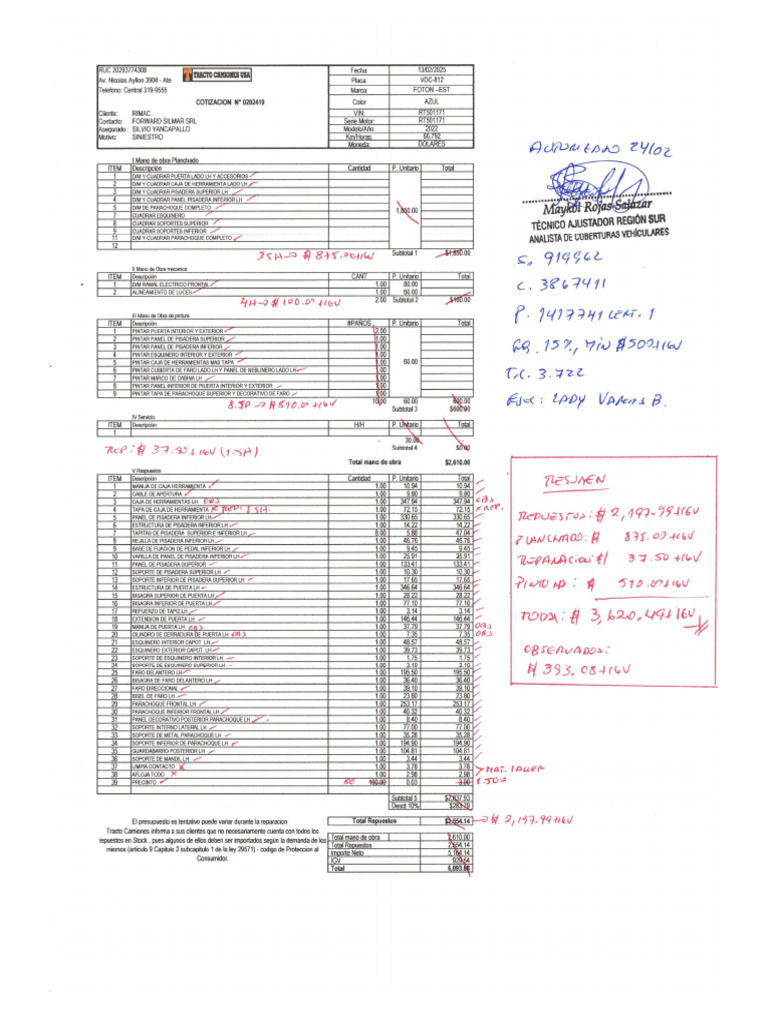 RUC 20293774308
Av. Nicolas Ayllon 3904 - Ate
Telefono: Central 319-9555
TRACTO CAMIONES USA
COTIZACION N° 0202419
Cliente: RIMAC
Contacto: FORWARD SILMAR SRL
Asegurado : SILVIO YANCAPALLO
Motivo: SINIESTRO
Fecha: 13/02/2025
Placa: VDC-812
Marca: FOTON -EST
Color AZUL
VIN: RT501171
Serie Motor: RT501171
Modelo/Año: 2022
Km/Horas: 66,792
Moneda: DOLARES
I Mano de obra Planchado
ITEM Descripción Cantidad P. Unitario Total
1 D/M Y CUADRAR PUERTA LADO LH Y ACCESORIOS
2 D/M Y CUADRAR CAJA DE HERRAMIENTA LADO LH
3 D/M Y CUADRAR PISADERA SUPERIOR LH
4 D/M Y CUADRAR PANEL PISADERA INFERIOR LH
5 D/M DE PARACHOQUE COMPLETO
7 CUADRAR ESQUINERO
8 CUADRAR SOPORTES SUPERIOR
9 CUADRAR SOPORTES INFERIOR
11 D/M Y CUADRAR PARACHOQUE COMPLETO
12
1,850.00
Subtotal 1 $1,850.00
35H → $ 875.00+IGV
II Mano de Obra mecanica
ITEM Descripción CANT P. Unitario Total
1 D/M RAMAL ELECTRICO FRONTAL 1.00 80.00
2 ALINEAMIENTO DE LUCES 1.00 60.00
2.00 Subtotal 2 $160.00
4H → $ 100.00+IGV
III Mano de Obra de pintura
ITEM Descripción #PAÑOS P. Unitario Total
1 PINTAR PUERTA INTERIOR Y EXTERIOR 2.00
2 PINTAR PANEL DE PISADERA SUPERIOR 1.00
3 PINTAR PANEL DE PISADERA INFERIOR 1.00
4 PINTAR ESQUINERO INTERIOR Y EXTERIOR 1.00
5 PINTAR CAJA DE HERRAMIENTAS MAS TAPA 1.00
6 PINTAR CUBIERTA DE FARO LADO LH Y PANEL DE NEBLINERO LADO LH 1.00
7 PINTAR MARCO DE CABINA LH 1.00
8 PINTAR PANEL INFERIOR DE PUERTA INTERIOR Y EXTERIOR 1.00
9 PINTAR TAPA DE PARACHOQUE SUPERIOR Y DECORATIVO DE FARO 1.00
60.00
10.00 60.00 600.00
Subtotal 3 $600.00
8.50 → $ 510.00+IGV
IV Servicio
ITEM Descripción H/H P. Unitario Total
1
30.00
Subtotal 4 $0.00
REP: $ 37.50+IGV (1.5H)
Total mano de obra $2,610.00
V Respuestos
ITEM Descripción Cantidad P. Unitario Total
1 MANIJA DE CAJA HERRAMIENTA 1.00 10.94 10.94
2 CABLE DE APERTURA 1.00 9.80 9.80
3 CAJA DE HERRAMIENTAS LH OBS 1.00 347.94 347.94 OBS
4 TAPA DE CAJA DE HERRAMIENTA X REP. 1.5H. 1.00 72.15 72.15 X REP.
5 PANEL DE PISADERA INFERIOR LH 1.00 330.65 330.65
6 ESTRUCTURA DE PISADERA INFERIOR LH 1.00 14.22 14.22
7 TAPITAS DE PISADERA SUPERIOR E INFERIOR LH 8.00 5.88 47.04
8 REJILLA DE PISADERA INFERIOR LH 1.00 46.76 46.76
9 BASE DE FIJACION DE PEDAL INFERIOR LH 1.00 9.45 9.45
10 VARILLA DE PANEL DE PISADERA INFERIOR LH 1.00 25.91 26.91
11 PANEL DE PISADERA SUPERIOR 1.00 133.41 133.41
12 SOPORTE DE PISADERA SUPERIOR LH 1.00 10.30 10.30
13 SOPORTE INFERIOR DE PISADERA SUPERIOR LH 1.00 17.65 17.65
14 ESTRUCTURA DE PUERTA LH 1.00 346.64 346.64
15 BISAGRA SUPERIOR DE PUERTA LH 1.00 28.22 28.22
16 BISAGRA INFERIOR DE PUERTA LH 1.00 77.10 77.10
17 REFUERZO DE TAPIZ LH 1.00 3.14 3.14
18 EXTENSION DE PUERTA LH 1.00 146.44 146.44
19 MANIJA DE PUERTA LH OBS 1.00 37.79 37.79 OBS
20 CILINDRO DE CERRADURA DE PUERTA LH OBS 1.00 7.35 7.35 OBS
21 ESQUINERO INTERIOR CAPOT LH 1.00 48.57 48.57
22 ESQUINERO EXTERIOR CAPOT LH 1.00 39.73 39.73
23 SOPORTE DE ESQUINERO INTERIOR LH 1.00 1.75 1.75
24 SOPORTE DE ESQUINERO SUPERIOR LH 1.00 3.10 3.10
25 FARO DELANTERO LH 1.00 195.50 195.50
26 BISAGRA DE FARO DELANTERO LH 1.00 36.40 36.40
27 FARO DIRECCIONAL 1.00 39.10 39.10
28 BISEL DE FARO LH 1.00 23.80 23.80
29 PARACHOQUE FRONTAL LH 1.00 253.17 253.17
30 PARACHOQUE INFERIOR FRONTAL LH 1.00 40.32 40.32
31 PANEL DECORATIVO POSTERIOR PARACHOQUE LH 1.00 8.40 8.40
32 SOPORTE INTERNO LATERAL LH 1.00 77.00 77.00
33 SOPORTE DE METAL PARACHOQUE LH 1.00 35.28 35.28
34 SOPORTE INFERIOR DE PARACHOQUE LH 1.00 194.90 194.90
35 GUARDABARRO POSTERIOR LH 1.00 104.81 104.81
36 SOPORTE DE MANDIL LH 1.00 3.44 3.44
37 LIMPIA CONTACTO X 1.00 3.78 3.78
38 AFLOJA TODO X 1.00 2.98 2.98 MAT. TALLER
39 PRECINTO 50 100.00 0.03 3.00 1.50
Subtotal 5 $2,837.93
Desct 10% $283.79
Total Repuestos $2,554.14 → $ 2,197.99+IGV
El presupuesto es tentativo puede variar durante la reparacion
Tracto Camiones informa a sus clientes que no necesariamente cuenta con todos los
repuestos en Stock , pues algunos de ellos deben ser importados según la demanda de los
mismos (articulo 9 Capitulo 2 subcapitulo 1 de la ley 29571) - codigo de Proteccion al
Consumidor.
Total mano de obra 2,610.00
Total Repuestos 2,554.14
Importe Neto 5,164.14
IGV 929.54
Total 6,093.68
AUTORIZADO 24/02
Maykol Rojas Salazar
TÉCNICO AJUSTADOR REGIÓN SUR
ANALISTA DE COBERTURAS VEHÍCULARES
S. 919962
C. 3867411
P. 1417741 CERT. 1
15%, MIN $500+IGV
T.C. 3.722
EJEC: LADY VARGAS B.
RESUMEN
REPUESTOS: $ 2,197.99+IGV
PLANCHADO: $ 875.00+IGV
REPARACION: $ 37.50+IGV
PINTURA: $ 510.00+IGV
TOTAL: $ 3,620.49+IGV
OBSERVADOS:
$ 393.08+IGV